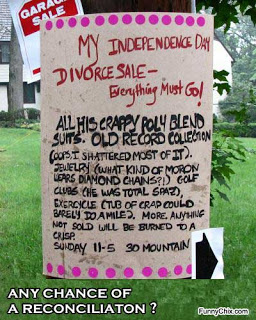 GARAGE
SALE
MY INDEPENDENCE DAY
DIVORCE SALE—
Everything Must Go!
ALL HIS CRAPPY POLY BLEND
SUITS. OLD RECORD COLLECTION
(OOPS, I SHATTERED MOST OF IT).
JEWELRY (WHAT KIND OF MORON
WEARS DIAMOND CHAINS?!) GOLF
CLUBS (HE WAS TOTAL SPAZ),
EXERCYCLE (TUB OF CRAP COULD
BARELY DO A MILE). MORE. ANYTHING
NOT SOLD WILL BE BURNED TO A
CRISP.
SUNDAY 11-5 30 MOUNTAIN
ANY CHANCE OF
A RECONCILIATON ?
FunnyChix.com